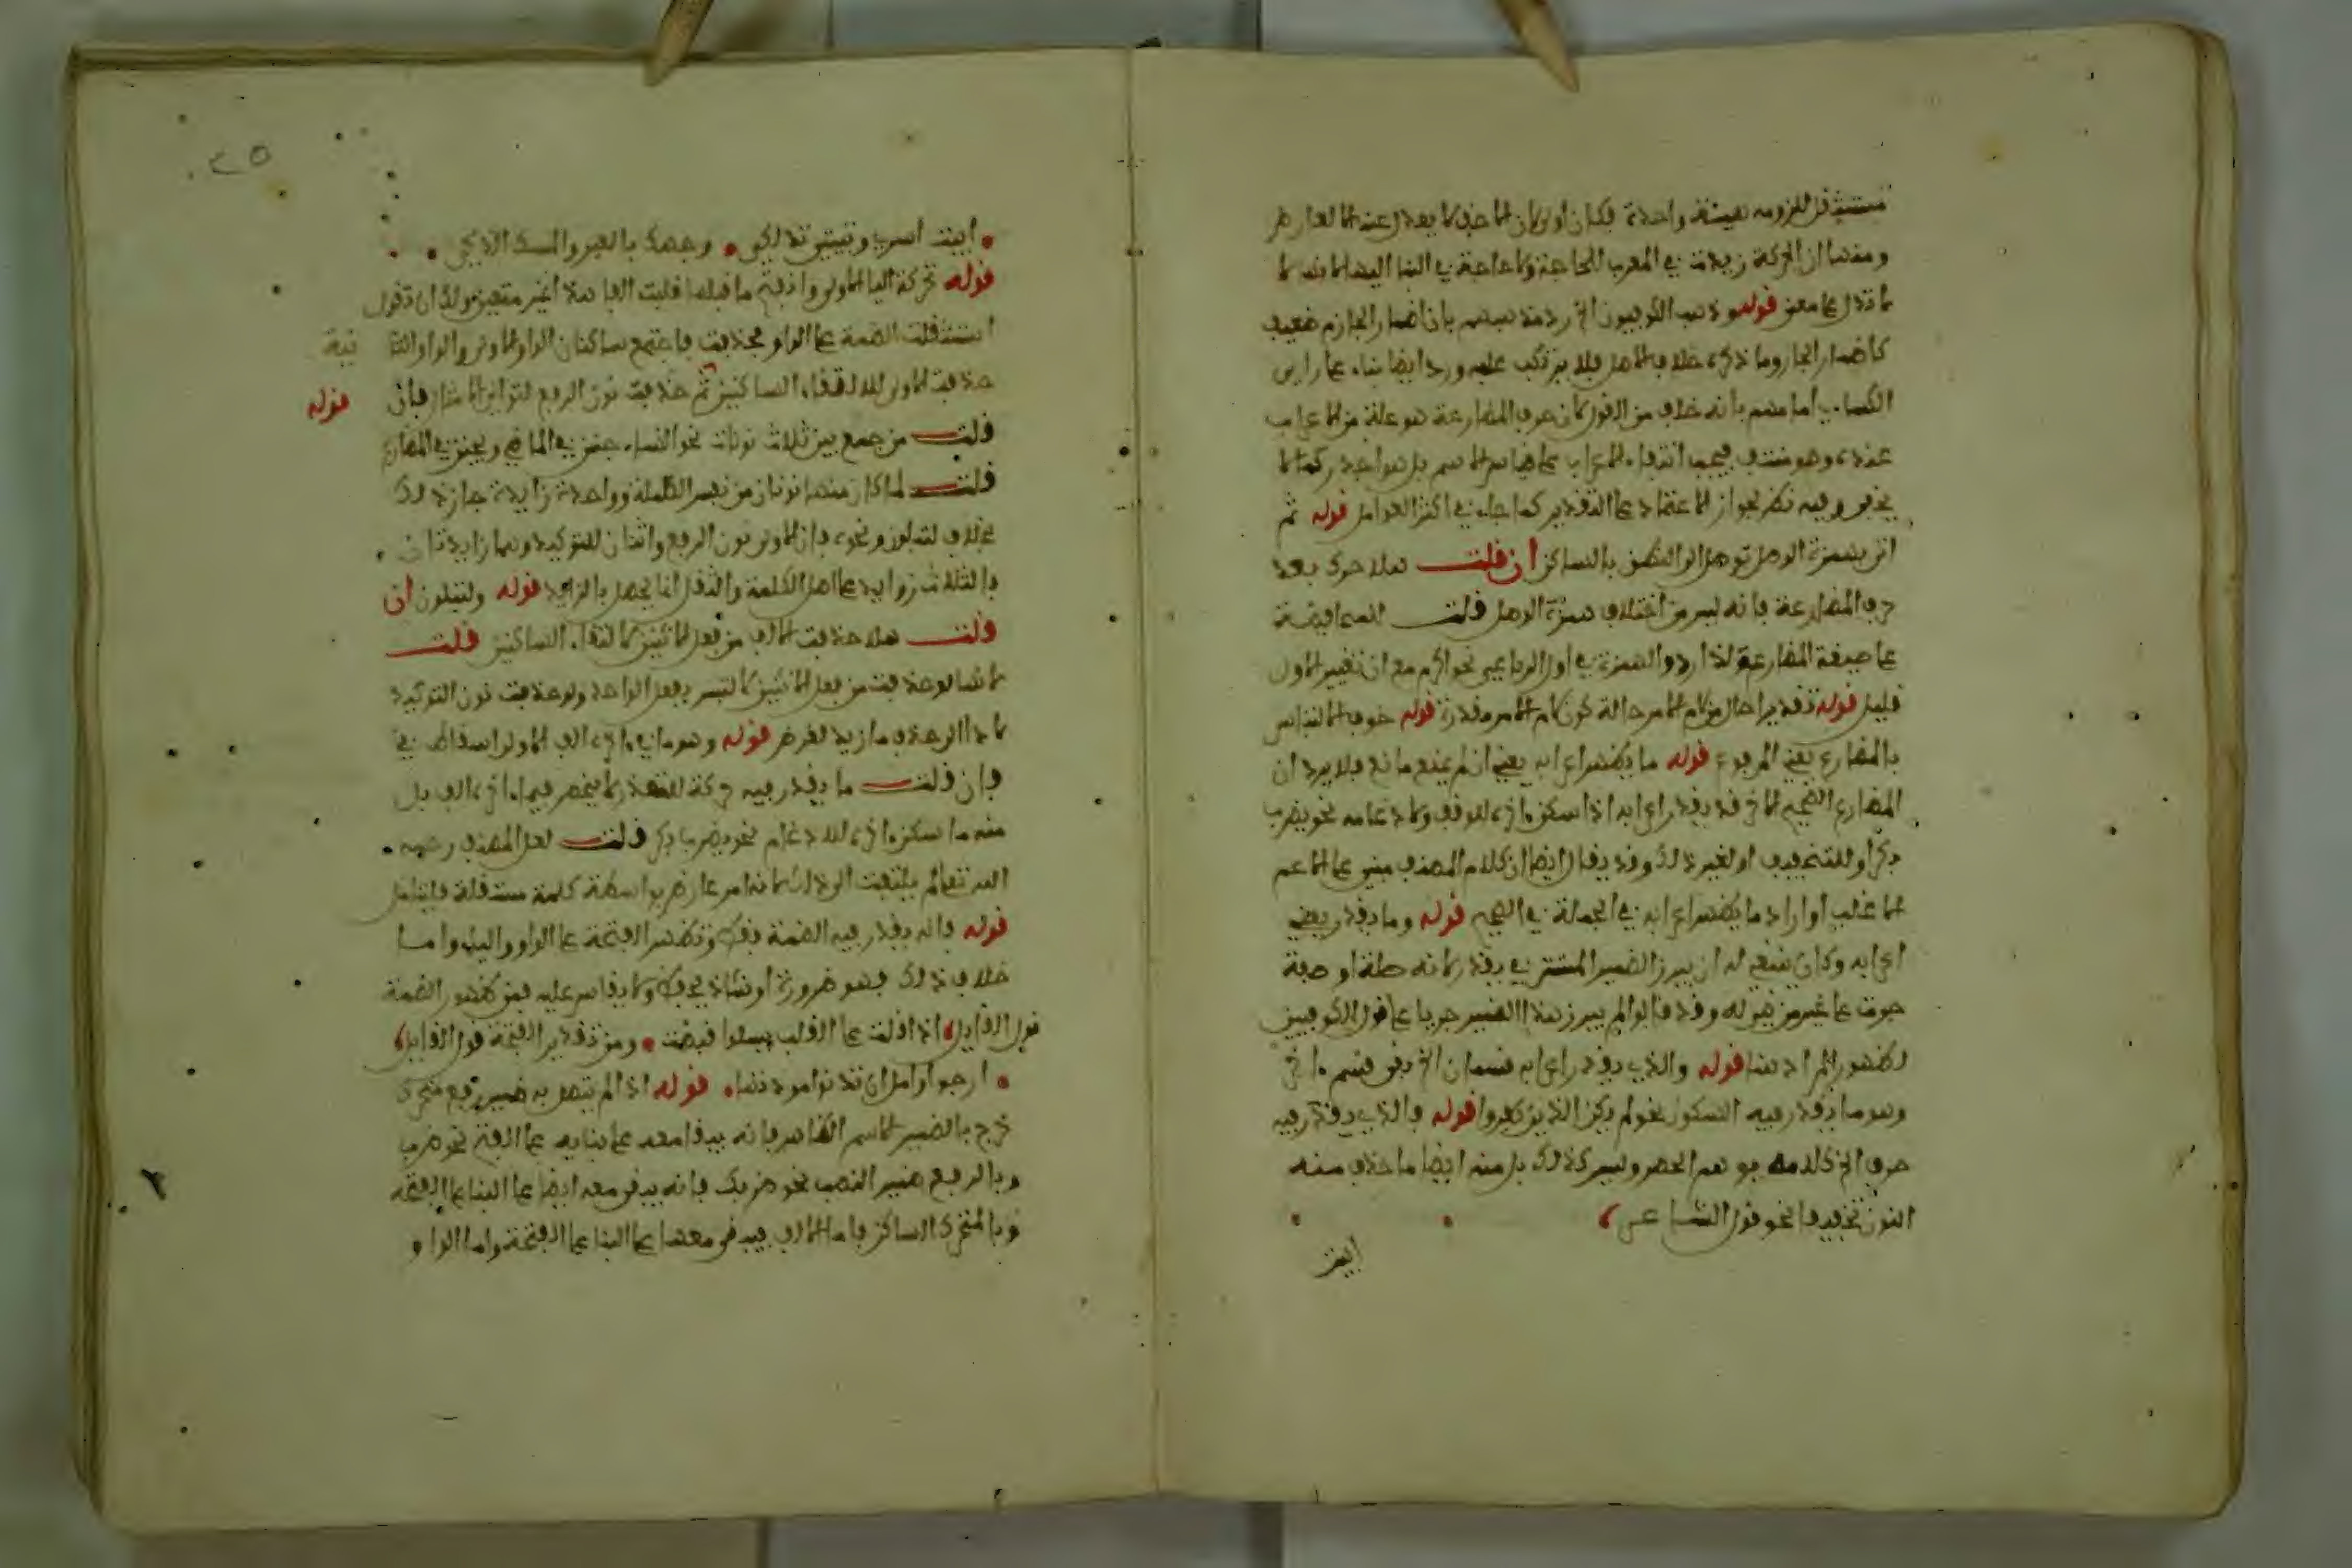 مستثقل للزومه هيئة واحدة فكان أولى بالحذف يعدل عنه العارض
ومنها أن الحركة زيدت في المعرب للحاجة ولا حاجة في البنا اليها
تدل على معنى قوله وذهب الكوفيون الخ رد مذهبهم بأن إضمار الجازم ضعيف
كإضمار الجار وما ذكره خلاف الأصل فلا يرتكب عليه ورد أيضا بناء على رأي
الكساي أمامهم بأنه خلاف من القول بأن حرف المضارعة هو علة من الاعراب
عنده وهو منتف فيجب انتفاء الاعراب
يخفى وفيه نظر لجواز الاعتماد على التقدير كما جاء في أكثر العوامل قوله ثم
اتى بهمزة الوصل توصلا الى النطق بالساكن إن قلت هلا حرك بعد
حرف المضارعة فانه ليس من اختلاف همزة الوصل قلت المحافظة
على صيغة المضارعة لذا ردوا الهمزة في أول الرباعي نحو أكرم مع ان تغيير الاول
قليل قوله تقديرا حال من لام الامر حالة كون لام الامر مقدرة قوله خوف الالتباس
بالمضارع يعني المرفوع قوله ما يظهر اعرابه يعني ان لم يمنع مانع فلا يرد ان
المضارع الصحيح الاخر قد يقدر اعرابه اذا سكن اخره للوقف ولادغامه نحو يضرب
بكر أو للتخفيف او لغير ذلك وقد يقال أيضا ان كلام المصنف مبني على الاعم
الاغلب أو اراد ما يظهر اعرابه في الجملة قوله وما يقدر يعني
اعرابه وكان ينبغي له ان يبرز الضمير المستتر في يقدر لأنه صلة او صفة
جرت على غير من هو له وقد قالوا لم يبرز هذا الضمير جريا على قول الكوفيين
لظهور المراد هنا قوله والذي يقدر اعرابه قسمان الخ بقي قسم اخر
وهو ما يقدر فيه السكون نحو لم يكن الذين كفروا قوله فالذي يقدر فيه
حرف الخ كلامه يوهم الحصر وليس كذلك بل منه أيضا ما حذف منه
النون تخفيفا نحو قول الشاعر
ابيت
٢٥
ابيت اسري وتبيتي تدلكي وجهك بالعنبر والمسك الذكي
قوله تحركة اليا الاولى وانفتح ما قبلها قلبت الفا هذا غير متعين ولك ان تقول
استثقلت الضمة على الواو فحذفت فاجتمع ساكنان الواو الاولى والواو الثا نية
حذفت الاولى لالتقاء الساكنين ثم حذفت نون الرفع لتوالي الامثال فان قوله
قلت من جمع بين ثلاث نونات نحو النساء جنن في الماضي ويجنن في المضارع
قلت لما كان منها نونان من نفس الكلمة وواحدة زايدة جاز ذلك
بخلاف لتبلون ونحوه فان الاولى نون الرفع واثنان للتوكيد وهما زايدتان
فالثلاث زوايد على اصل الكلمة والثقل انما يحصل بالزايد قوله ولتبلون ان
قلت هلا حذفت الالف من فعل الاثنين لالتقاء الساكنين قلت
لأنها لو حذفت من فعل الاثنين لالتبس بفعل الواحد ولو حذفت نون التوكيد
لأدا الى حذف ما زيد لغرض قوله وهو ما في اخره الف الاولى اسقاط في
فان قلت ما يقدر فيه حركة للتعذر لا ينحصر فيما اخره الف بل
منه ما سكن اخره للادغام نحو يضرب بكر قلت لعل المصنف رحمه
الله تعالى لم يلتفت الى ذلك لأنه امر عارض بواسطة كلمة مستقلة فليتأمل
قوله فانه يقدر فيه الضمة فقط وتظهر الفتحة على الواو واليا واما
خلاف ذلك فهو ضرورة او شاذ يحفظ ولا يقاس عليه فمن ظهور الضمة
قول القايل اذا قلت على القلب يسلوا قيضت ومن تقدير الفتحة قول القايل
ارجو وآمل ان تدنوا مودتها قوله اذا لم يتصل به ضمير رفع متحرك
خرج بالضمير الاسم الظاهر فانه يبقا معه على بنايه على الفتح نحو ضرب
وبالرفع ضمير النصب نحو ضربك فانه يبقى معه أيضا على البنا على الفتحة
وبالمتحرك الساكن فاما الالف فيبقى معها على البنا على الفتحة واما الواو